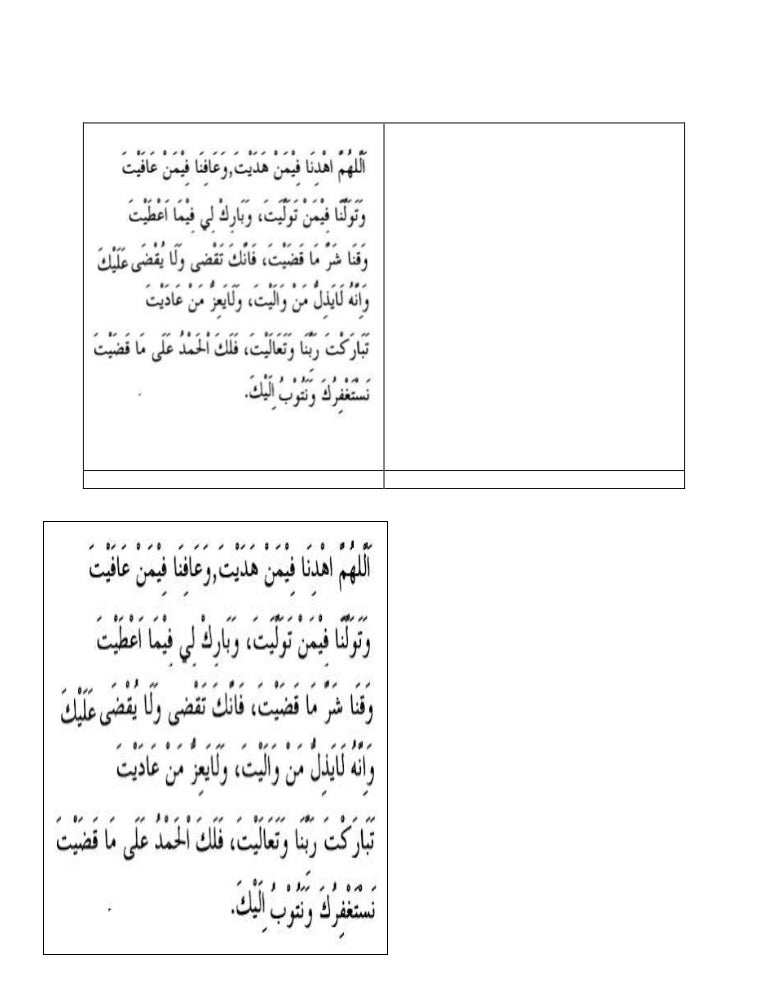 اَللّٰهُمَّ اهْدِنَا فِيْمَنْ هَدَيْتَ,وَعَافِنَا فِيْمَنْ عَافَيْتَ
وَتَوَلَّنَا فِيْمَنْ تَوَلَّيْتَ، وَبَارِكْ لِي فِيْمَا اَعْطَيْتَ
وَقِنَا شَرَّ مَا قَضَيْتَ، فَانَّكَ تَقْضِى وَلَا يُقْضَى عَلَيْكَ
وَاَنَّهُ لَايَذِلُّ مَنْ وَالَيْتَ، وَلَايَعِزُّ مَنْ عَادَيْتَ
تَبَارَكْتَ رَبَّنَا وَتَعَالَيْتَ، فَلَكَ اْلحَمْدُ عَلَى مَا قَضَيْتَ
نَسْتَغْفِرُكَ وَنَتُوْبُ اِلَيْكَ.
اَللّٰهُمَّ اهْدِنَا فِيْمَنْ هَدَيْتَ,وَعَافِنَا فِيْمَنْ عَافَيْتَ
وَتَوَلَّنَا فِيْمَنْ تَوَلَّيْتَ، وَبَارِكْ لِي فِيْمَا اَعْطَيْتَ
وَقِنَا شَرَّ مَا قَضَيْتَ، فَانَّكَ تَقْضِى وَلَا يُقْضَى عَلَيْكَ
وَاَنَّهُ لَايَذِلُّ مَنْ وَالَيْتَ، وَلَايَعِزُّ مَنْ عَادَيْتَ
تَبَارَكْتَ رَبَّنَا وَتَعَالَيْتَ، فَلَكَ اْلحَمْدُ عَلَى مَا قَضَيْتَ
نَسْتَغْفِرُكَ وَنَتُوْبُ اِلَيْكَ.